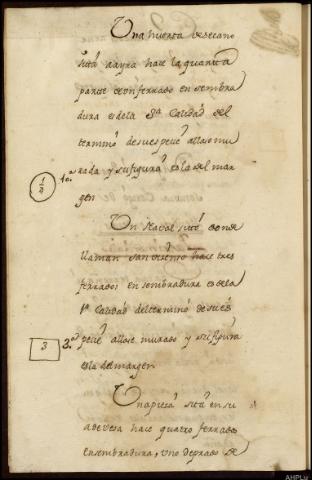 Una huerta desecano
sita aayra hace la quarta
parte deun ferrado en sembra
dura es dela 3ª Calidad del
termino desuespeve allase mu
rada y su figura es la del mar
gen
1/4
1ª
Un Naval sito donde
llaman san hace tres
ferrados en sembradura es dela
1ª Calidad del termino desues
peve allase murado y su figura
es la del margen
3
3ª
Una piesa sita en su
adevesa hace quatro ferrados
ensembradura, uno deprado de
AHPLu